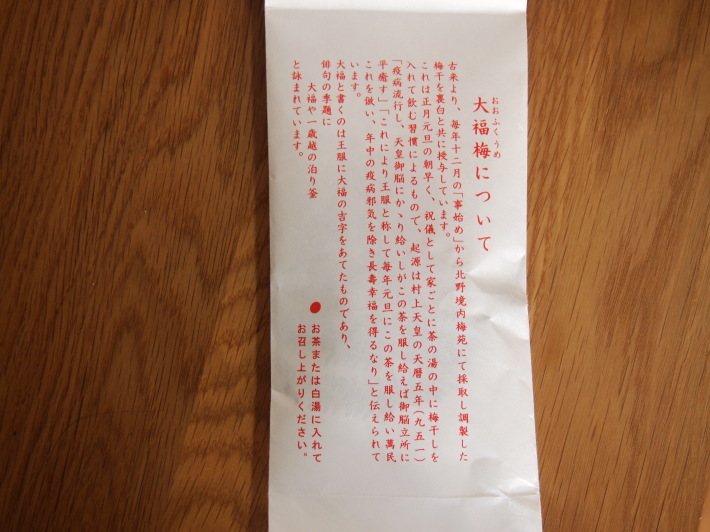 おおふくうめ
大福梅について
古来より、毎年十二月の「事始め」から北野境内梅苑にて採取し調製した
梅干を裏白と共に授与しています。
これは正月元旦の朝早く、祝儀として家ごとに茶の湯の中に梅干しを
入れて飲む習慣によるもので、起源は村上天皇の天暦五年(九五一)
「疫病流行し、天皇御脳にかゝり給いしがこの茶を服し給えば御脳立所に
平癒す」「これにより王服と称して毎年元旦にこの茶を服し給い萬民
これを倣い、年中の疫病邪気を除き長壽幸福を得るなり」と伝えられて
います。
大福と書くのは王服に大福の吉字をあてたものであり、
俳句の季題に
大福や一歳越の泊り釜
と詠まれています。
お茶または白湯に入れて
お召し上がりください。